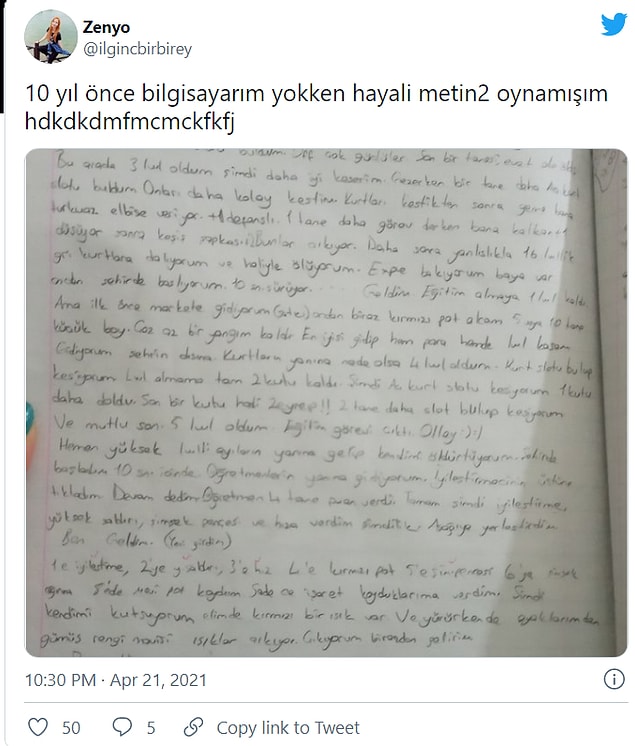 Zenyo
@ilgincbirbirey
10 yıl önce bilgisayarım yokken hayali metin2 oynamışım
hdkdkdmfmcmckfkfj
çok güçlüler son bir tanesi
Bu arada 3 lwl oldum şimdi daha iyi keserim. Gezerken bir tane daha Aç kurt
slotu buldum Onları daha kolay kestim. Kurtları kestikten sonra yere bana
turkuaz elbise veriyor. +1 defanslı. 1 tane daha görev derken bana kalkan+1
düşüyor sonra keşiş şapkası. Bunlar çıkıyor. Daha sonra yanlışlıkla 16 lwllik
gri kurtlara dalıyorum ve haliyle ölüyorum. Expe bakıyorum baya var
şehirde başlıyorum. 10 sn. sürüyor. Geldim. Eğitim almaya 1 lwl kaldı
Ama ilk önce markete gidiyorum ondan biraz kırmızı pot alcam 5 10 tane
küçük boy. Çoz az bir yangım kaldı En iyisi gidip hem para hemde lwl kasam
Gidiyorum şehrin dışına. Kurtların yanına nede olsa 4 lwl oldum. Kurt slotu bulup
kesiyorum Lwl almama tam 2 kutu kaldı. Şimdi Aç kurt slotu kesiyorum 1 kutu
daha doldu. Son bir kutu hadi Zeyrep!! 2 tane daha slot bulup kesiyorum
Ve mutlu son. 5 lwl oldum. Eğitim görevi çıktı. Olley :) :)
Hemen yüksek lwlli ayıların yanına gelip kendimi öldürtüyorum. Şehirde
başladım 10 sn içinde. Öğretmenlerin yanına gidiyorum. İyileştirmecinin üstüne
tıkladım Devam dedim Öğretmen 4 tane puan verdi. Tamam şimdi iyileştirme,
yüksek saldırı, şimşek pençesi ve hıza verdim Aşağıya yerleştirdim
Ben Geldim. (Yeni girdim)
1'e iyileştirme, 2'ye y. saldırı, 3'e hız 4'e kırmızı pot 5'e şimşek pençesi 6'ya
mavi pot koydum Sadece işaret koyduklarıma verdim. Şimdi
kendimi kutsuyorum elimde kırmızı bir ışık var Ve yürürkende ayaklarımdan
gümüş rengi mavisi ışıklar çıkıyor. Çıkıyorum birazdan gelirim
10:30 PM · Apr 21, 2021
50 5 Copy link to Tweet